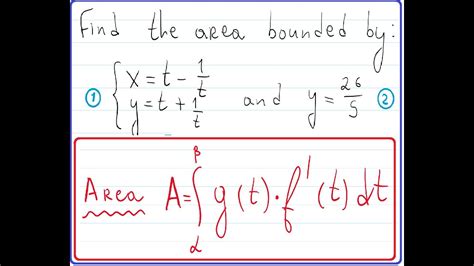 Find the area bounded by:
① { x = t - 1/t
y = t + 1/t and y = 26/5 ②
Area A = ∫_α^β g(t) · f'(t) dt